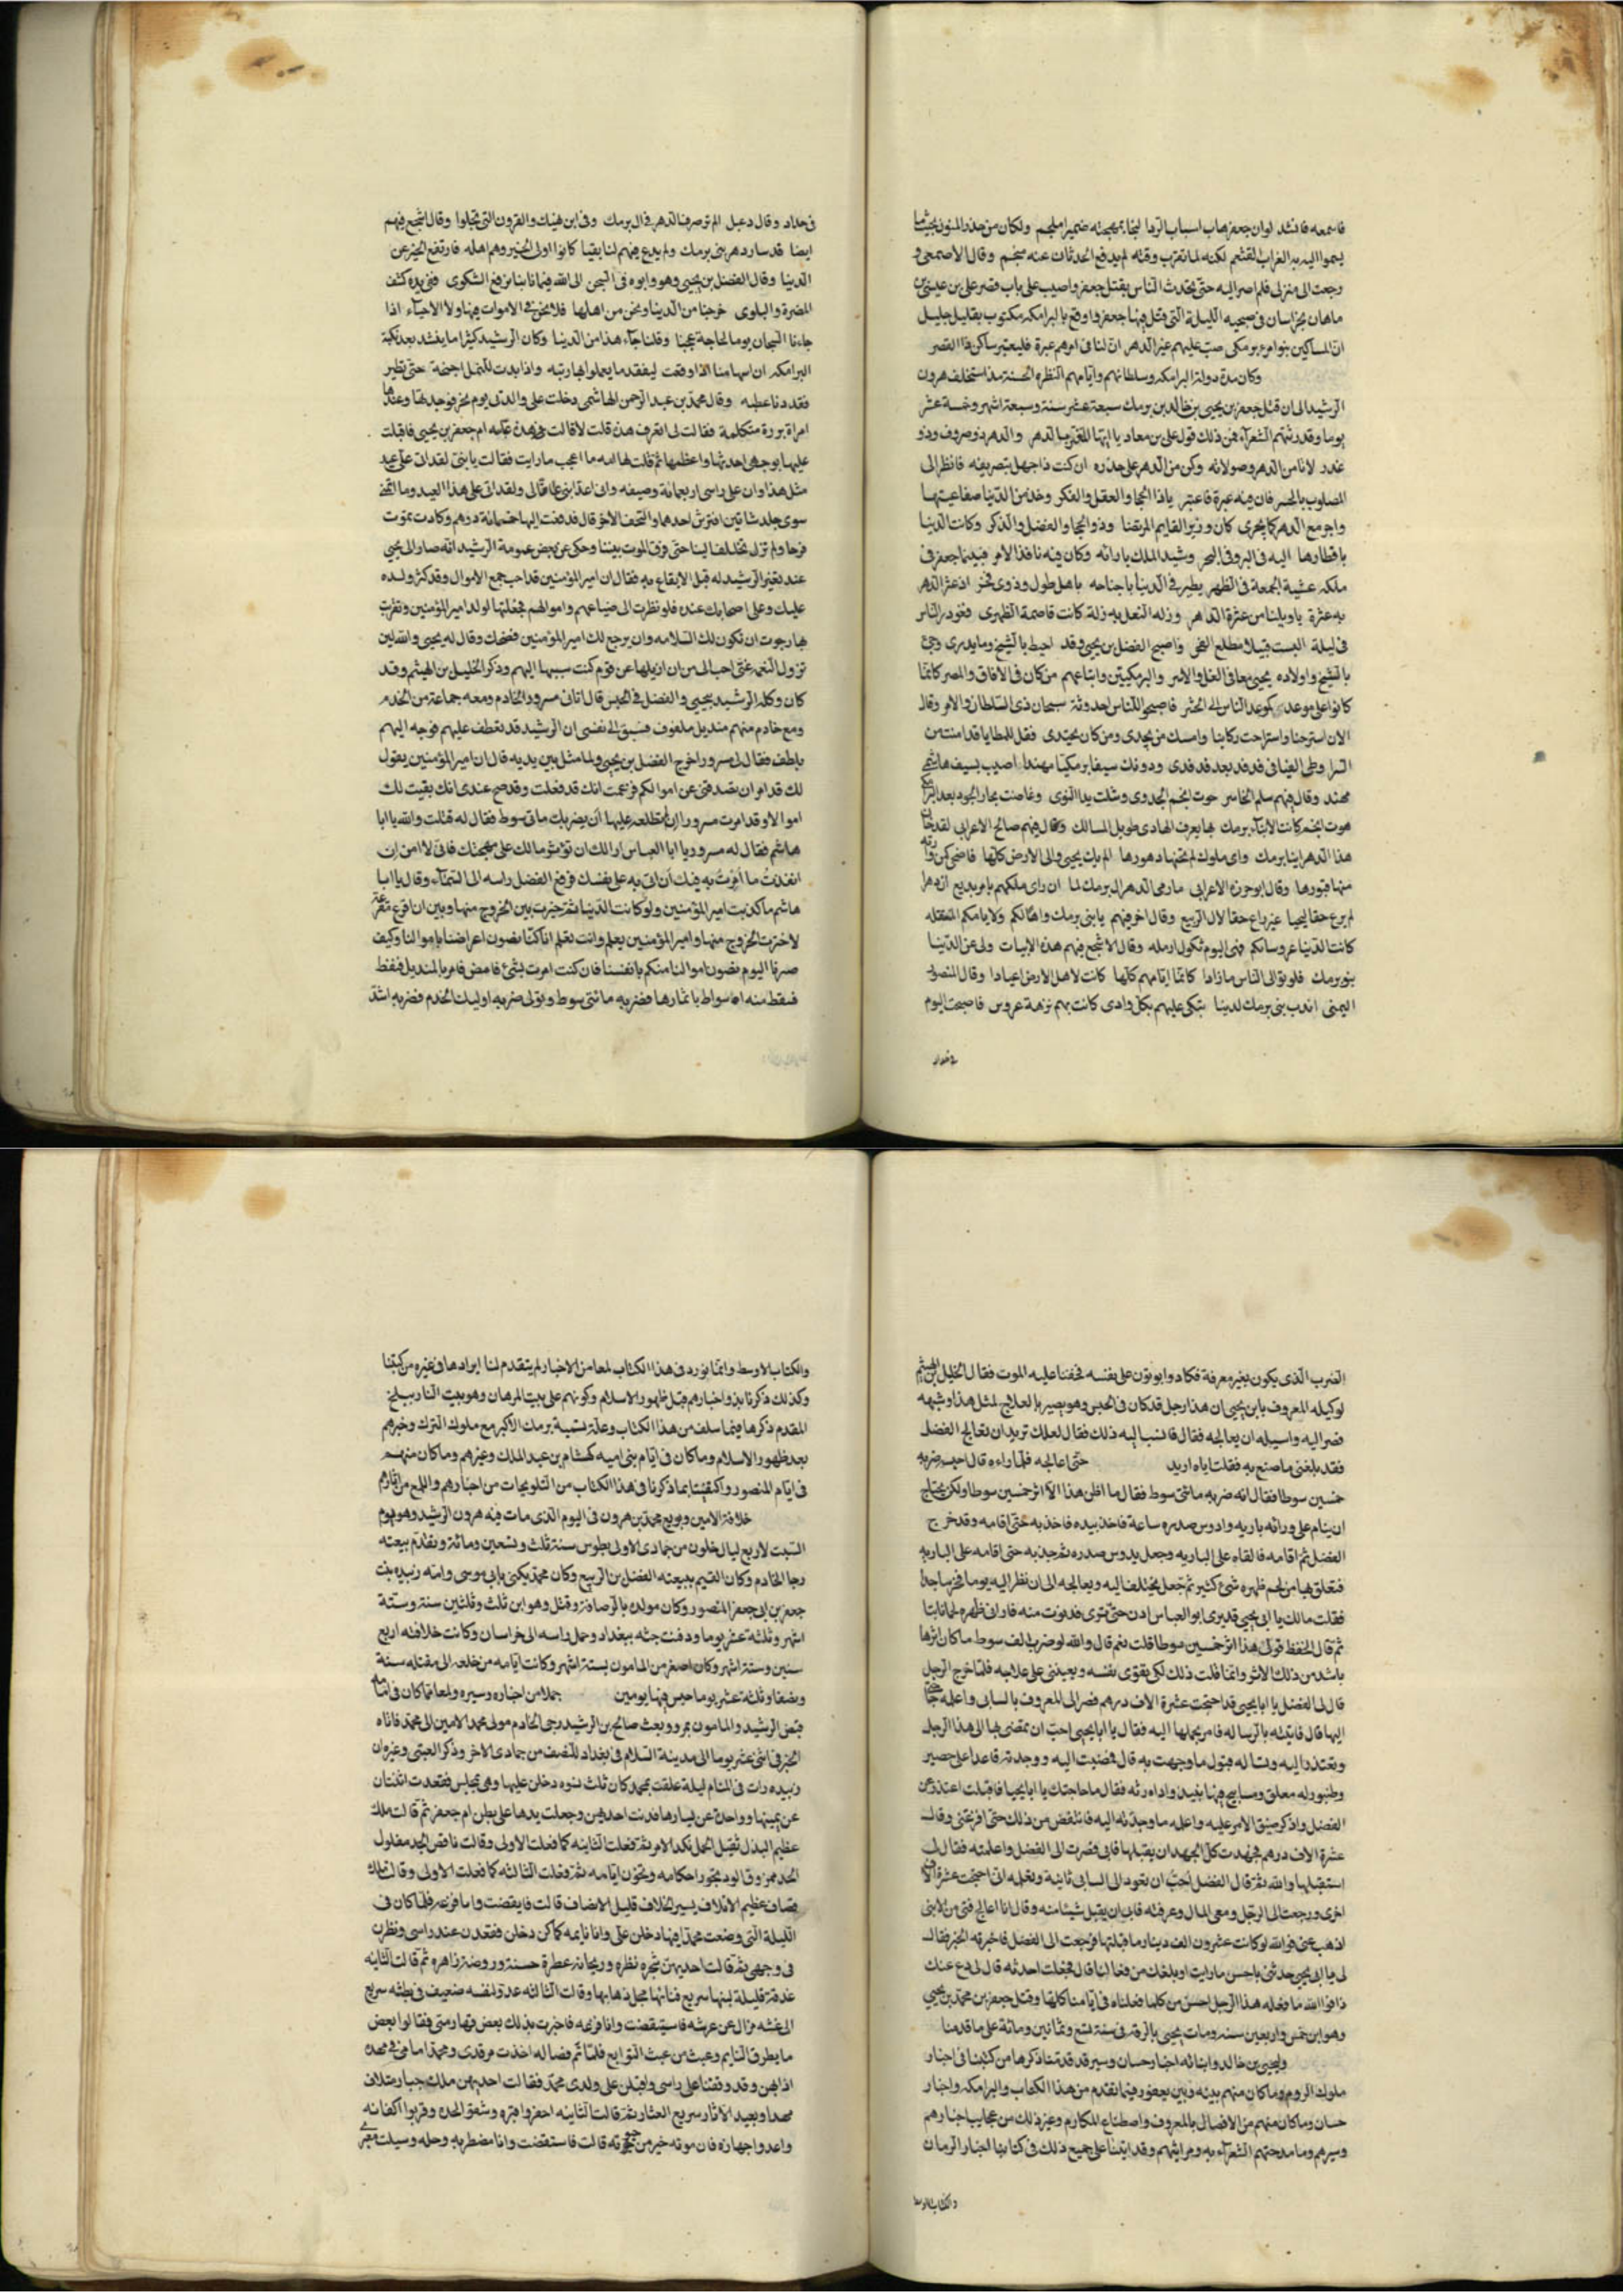 فاسمعه فانشد لوان جعفر هاب اسباب الردا لنجا بمهجته ضمير ملجم ولكان من حذر المنون بحيث ما
يسموا اليه به الغراب القشعم لكنه لما تقرب وقته لم يدفع الحدثان عنه منجم وقال الاصمعي و
رجعت الى منزلي فلم اصر اليه حتى تحدث الناس بقتل جعفر واصيب على باب قصر علي بن عيسى بن
ماهان بخراسان في صبحيه الليلة التي قتل فيها جعفر واوقع بالبرامكه مكتوب بقليل جليل
ان المساكين بنوا برمكى صب عليهم غير الدهر ان لنا في امرهم عبرة فليعتبر ساكن ذا القصر
وكان مدة دولة البرامكه وسلطانهم وايامهم النظره الحسنة مذ استخلف هرون
الرشيد الى ان قتل جعفر بن يحيى بن خالد بن برمك سبعة عشر سنة وسبعة اشهر وخمسة عشر
يوما وقد رثتهم الشعراء فمن ذلك قول علي بن معاد يا ايها المغتر بالدهر والدهر ذو صروف وذو
غدر لا تامن الدهر وصولاته وكن من الدهر على حذره ان كنت ذا جهل بتصريفه فانظر الى
المصلوب بالجسر فان فيه عبرة فاعتبر ياذا الحجا والعقل والفكر وخذ من الدنيا صفا عيشها
واجر مع الدهر كما يجرى كان وزير القايم المرتضا وذو الحجا والفضل والذكر وكانت الدنيا
باقطارها اليه في البر وفي البحر وشيد الملك باراته وكان فيه نافذ الامر فبينما جعفر في
ملكه عشية الجمعة في الظهر يطير في الدنيا باجناحه ياهل طول وذوى فخر اذ عثر الدهر
به عثرة ياويلنا من عثرة الداهر وزله النعل به زلة كانت قاصمة الظهرى فغودر الناس
في ليلة السبت قبيلا مطلع الفجر واصبح الفضل بن يحيى وقد احيط بالشيخ وما يدرى وجئ
بالشيخ واولاده يحيى معا في الغل والاسر والبرمكيين واتباعهم من كان في الافاق والمصر كانما
كانوا على موعد كموعد الناس الى الحشر فاصبحوا للناس احدوثة سبحان ذي السلطان والامر وقال
الان استرحنا واستراحت ركابنا وامسك من يجدى ومن كان يجتدى فقل للمطايا قد امنت من
السرا وطى الفيافي فدفد بعد فدفدى ودونك سيفا برمكيا مهندا اصيب بسيف هاشمي
مهند وقال فيهم سلم الخاسر خوت انجم الجدوى وشلت يدا النوى وغاضت بحار الجود بعد البرامك
هوت انجم كانت لابناء برمك بها يعرف الهادى طويل المسالك وقال فيهم صالح الاعرابي لقد خان
هذا الدهر ابنا برمك واى ملوك لم تخنها دهورها الم يك يحيى والى الارض كلها فاضحى كمن وارته
منها قبورها وقال ابو حرزه الاعرابي ما رعى الدهر ال برمك لما ان راى ملكهم بامر بديع ان دهرا
لم يرع حقا ليحيا غير راع حقا لال الربيع وقال اخر فيهم يا بني برمك واها لكم ولايامكم المقتبله
كانت الدنيا عروسا بكم فهي اليوم ثكول ارمله وقال الاشجع فيهم هذه الابيات ولى عن الدنيا
بنو برمك فلو توالى الناس ما زادا كانما ايامهم كلها كانت لاهل الارض اعيادا وقال المنصور
اليمنى اندب بنى برمك لدينا تبكى عليهم بكل وادى كانت بهم نزهة عروس فاصبحت اليوم
في حداد
في حداد وقال دعبل الم تر صرف الدهر في ال برمك وفي ابن نهيك والقرون التي تخلوا وقال اشجع فيهم
ايضا قد سار دهر بنى برمك ولم يدع فيهم لنا بقيا كانوا اولى الخير وهم اهله فارتفع الخير عن
الدنيا وقال الفضل بن يحيى وهو وابوه في السجن الى الله فيما نابنا نرفع الشكوى ففي يده كشف
المضرة والبلوى خرجنا من الدنيا ونحن من اهلها فلا نحن في الاموات فيها ولا الاحياء اذا
جاءنا السجان يوما لحاجة عجبنا وقلنا جاء هذا من الدنيا وكان الرشيد كثيرا ما ينشد بعد نكبة
البرامكه ان اسهامنا اذا وقعت ليفقد ما يعلوا بها رتبه واذا بدت للنمل اجنحة حتى تطير
فقد دنا عطبه وقال محمد بن عبد الرحمن الهاشمى دخلت على والدتى يوم نحر فوجدتها وعندها
امراة برزة متكلمة فقالت لى اتعرف هذه قلت لا قالت هذه عتابه ام جعفر بن يحيى فاقبلت
عليها بوجهى احدثها واعظمها ثم قلت لها امه ما اعجب ما رايت فقالت يا بنى لقد اتى على عيد
مثل هذا وان على راسى اربعمائة وصيفه وانى اعد ابنى عاقا لى ولقد اتى على هذا العيد وما اتمنى
سوى جلد شاتين افترش احدهما والتحف الاخر قال فدفعت اليها خمسمائة درهم وكادت تموت
فرحا ولم تزل تختلف الينا حتى فرق الموت بيننا وحكى عن بعض عمومة الرشيد انه صار الى يحيى
عند تغير الرشيد له قبل الايقاع به فقال ان امير المؤمنين قد احب جمع الاموال وقد كثر ولده
عليك وعلى اصحابك عنده فلو نظرت الى ضياعهم واموالهم فجعلتها لولد امير المؤمنين وتقربت
بها رجوت ان تكون لك السلامه وان يرجع لك امير المؤمنين فضحك وقال له يحيى والله لئن
تزول النعمه عنى احب الى من ان ازيلها عن قوم كنت سببها اليهم وذكر الخليل بن الهيثم وقد
كان وكله الرشيد بيحيى والفضل في الحبس قال اتانى مسرور الخادم ومعه جماعة من الخدم
ومع خادم منهم منديل ملفوف فسبق الى نفسى ان الرشيد قد تعطف عليهم فوجه اليهم
بلطف فقال لى مسرور اخرج الفضل بن يحيى ولما مثل بين يديه قال ان امير المؤمنين يقول
لك قد امر ان تصدقنى عن اموالكم فزعمت انك قد فعلت وقد صح عندى انك بقيت لك
اموالا وقد امرت مسرورا ان لم تطلعه عليها ان يضربك ماتى سوط فقال له قتلت والله يا ابا
هاشم فقال له مسرور يا ابا العباس ارى لك ان لا تؤثر مالك على مهجتك فانى لا امن ان
انفذت ما امرت به فيك ان اتى به على نفسك فرفع الفضل راسه الى السماء وقال يا ابا
هاشم ما كذبت امير المؤمنين ولو كانت الدنيا ثم خيرت بين الخروج منها وبين ان اقرع مقرعة
لاخترت الخروج منها وامير المؤمنين يعلم وانت تعلم انا كنا نصون اعراضنا باموالنا وكيف
صرنا اليوم نصون اموالنا منكم بانفسنا فان كنت امرت بشئ فامض فامر بالمنديل فنفض
فسقط منه اسواط باثمارها فضربه مائتى سوط وتولى ضربه اوليك الخدم فضربه اشد
الضرب الذى يكون بغير معرفة فكادوا ياتون على نفسه فخفنا عليه الموت فقال الخليل بن الهيثم
لوكيله المعروف بابن يحيى ان هذا رجل قد كان في الحبس وهو بصير بالعلاج لمثل هذا وشبهه
فصر اليه واسيله ان يعالجه فقال فانتسبت اليه ذلك فقال لعلك تريد ان تعالج الفضل
فقد بلغنى ما صنع به فقلت اياه اريد حتى اعالجه فلما راءه قال احسبه ضربه
خمسين سوطا فقال انه ضربه مائتى سوط فقال ما اظن هذا الا اثر خمسين سوطا ولكن يحتاج
ان ينام على ورائه باريه وادوس صدره ساعة فاخذ بيده فاخذ به حتى اقامه وقد خرج
الفضل ثم اقامه فالقاه على الباريه وجعل يدوس صدره ثم جذبه حتى اقامه على الباريه
فتعلق بها من لحم ظهره شئ كثير ثم جعل يختلف اليه ويعالجه الى ان نظر اليه يوما فخر ساجدا
فقلت مالك يا ابى يحيى قد برى ابو العباس ادن حتى ترى فدنوت منه فارانى ظهره لحما نابتا
ثم قال اتحفظ قولى هذا اثر خمسين سوطا قلت نعم قال والله لو ضرب الف سوط ما كان اثرها
باشد من ذلك الاثر وانما قلت ذلك لكى يقوى نفسه ويعيننى على علاجه فلما خرج الرجل
قال لى الفضل يا ابا يحيى قد احتجت عشرة الاف درهم فصر الى المعروف بالسابى واعلمه حاجتى
اليها قال فاتيته بالرساله فامر بحملها اليه فقال يا ابا يحيى احب ان تمضى بها الى هذا الرجل
وتعتذر اليه وتساله قبول ما وجهت به قال فمضيت اليه ووجدته قاعدا على حصير
وطنبور له معلق ومسابيح فيها نبيذ واداه رثه فقال ما حاجتك يا ابا يحيا فاقبلت اعتذر عن
الفضل واذكر ضيق الامر عليه واعلمه ما وجه به اليه فانتفض من ذلك حتى افزعنى وقال
عشرة الاف درهم فجهدت كل الجهد ان يقبلها فابى فصرت الى الفضل واعلمته فقال لى
استقبلها والله ثم قال الفضل احب ان تعود الى السابى ثانية وتعلمه انى احتجت عشرة الاف
اخرى ورجعت الى الرجل ومعى المال وعرفته فابى ان يقبل شيئا منه وقال انا اعالج فتى من الابنى
اذهب عنى فوالله لو كانت عشرون الف دينار ما قبلتها فرجعت الى الفضل فاخبرته الخبر فقال
لى يا ابى يحيى حدثنى باحسن ما رايت او بلغك من فعالنا قال فجعلت احدثه قال لى دع عنك
ذا فوالله ما فعله هذا الرجل احسن من كلما فعلناه في ايامنا كلها وقتل جعفر بن محمد بن يحيى
وهو ابن خمس واربعين سنه ومات يحيى بالرقة في سنة تسع وثمانين ومائة على ما قدمنا
وليحيى بن خالد وابنائه اخبار حسان وسير قد قدمنا ذكرها من كتبنا في اخبار
ملوك الروم وما كان منهم بينه وبين يعفور فيما تقدم من هذا الكتاب والبرامكه واخبار
حسان وما كان منهم من الافضال بالمعروف واصطناع المكارم وغير ذلك من عجايب اخبارهم
وسيرهم وما مدحتهم الشعراء به ومراثيهم وقد اتينا على جميع ذلك في كتابنا اخبار الزمان
والكتاب الاوسط
والكتاب الاوسط وانما نورد في هذا الكتاب لمعا من الاخبار لم يتقدم لنا ايرادها في غيره من كتبنا
وكذلك ذكرنا بدو اخبارهم قبل ظهور الاسلام وكونهم على بيت المرهان وهو بيت النار ببلخ
المقدم ذكرها فيما سلف من هذا الكتاب وعلة تسمية برمك الاكبر مع ملوك الترك وخبرهم
بعد ظهور الاسلام وما كان في ايام بنى اميه كهشام بن عبد الملك وغيرهم وما كان منهم
في ايام المنصور واكتفينا بما ذكرنا في هذا الكتاب من التلويحات من اخبارهم واللمع من اثارهم
خلافة الامين وبويع محمد بن هرون في اليوم الذى مات فيه هرون الرشيد وهو يوم
السبت لاربع ليال خلون من جمادى الاولى بطوس سنة ثلث وتسعين ومائة وتقدم ببيعته
رجا الخادم وكان القيم ببيعته الفضل بن الربيع وكان محمد يكنى بابى موسى وامه زبيده بنت
جعفر بن ابى جعفر المنصور وكان مولده بالرصافة وقتل وهو ابن ثلث وثلثين سنة وستة
اشهر وثلثة عشر يوما ودفنت جثه ببغداد وحمل راسه الى خراسان وكانت خلافته اربع
سنين وستة اشهر وكان اصغر من المامون بستة اشهر وكانت ايامه من خلعه الى مقتله سنة
ونصفا وثلثة عشر يوما حبس فيها يومين جملا من اخباره وسيره ولمعا مما كان في ايامه
قبض الرشيد والمامون بمرو وبعث صالح بن الرشيد رجى الخادم مولى محمد الامين الى محمد فاتاه
الخبر في اثنى عشر يوما الى مدينة السلام في بغداد للنصف من جمادى الاخر وذكر العتبى وغيره ان
زبيده رات في المنام ليلة علقت بمحمد كان ثلث نسوه دخلن عليها وهى بمجلس فقعدت اثنتان
عن يمينها وواحدة عن يسارها فدنت احديهن وجعلت يدها على بطن ام جعفر ثم قالت ملك
عظيم البذل ثقيل الحمل نكد الامر ثم فعلت الثانيه كما فعلت الاولى وقالت ناقص الجد مفلول
الحد ممزوق الود تجور احكامه وتخون ايامه ثم فعلت الثالثه كما فعلت الاولى وقالت ملك
قصاف عظيم الاتلاف يسير الخلاف قليل الانصاف قالت فايقضت وانا فزعه فلما كان في
الليلة التى وضعت محمدا فيها دخلن على وانا نايمه كما كن دخلن فقعدن عند راسى ونظرن
في وجهى ثم قالت احديهن شجره نظره وريحانه عطرة حسنة وروضة زاهره ثم قالت الثانيه
غدقة قليلة لبثها سريع فنائها عجل ذهابها وقالت الثالثه عدو لنفسه ضعيف في بطشه سريع
الى غشه مزال عن عرشه فاستيقضت وانا فزعه فاخبرت بذلك بعض قهارمتى فقالوا بعض
ما يطرق النايم وعبث من عبث التوابع فلما تم فصاله اخذت مرقدى ومحمد امامى في مهده
اذا بهن وقد وقفنا على راسى واقبلن على ولدى محمد فقالت احديهن ملك جبار متلاف
مهدار بعيد الاثار سريع العثار ثم قالت الثانيه احفروا قبره وشقوا لحده وقربوا اكفانه
واعدوا جهازه فان موته خير من حيوته قالت فاستقضت وانا مضطربه وحله وسيلت معبرى